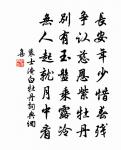 長安年少惜春殘
爭認慈恩紫牡丹
別有玉盤乘露冷
無人起就月中看
裴士淹白牡丹詞典網
集